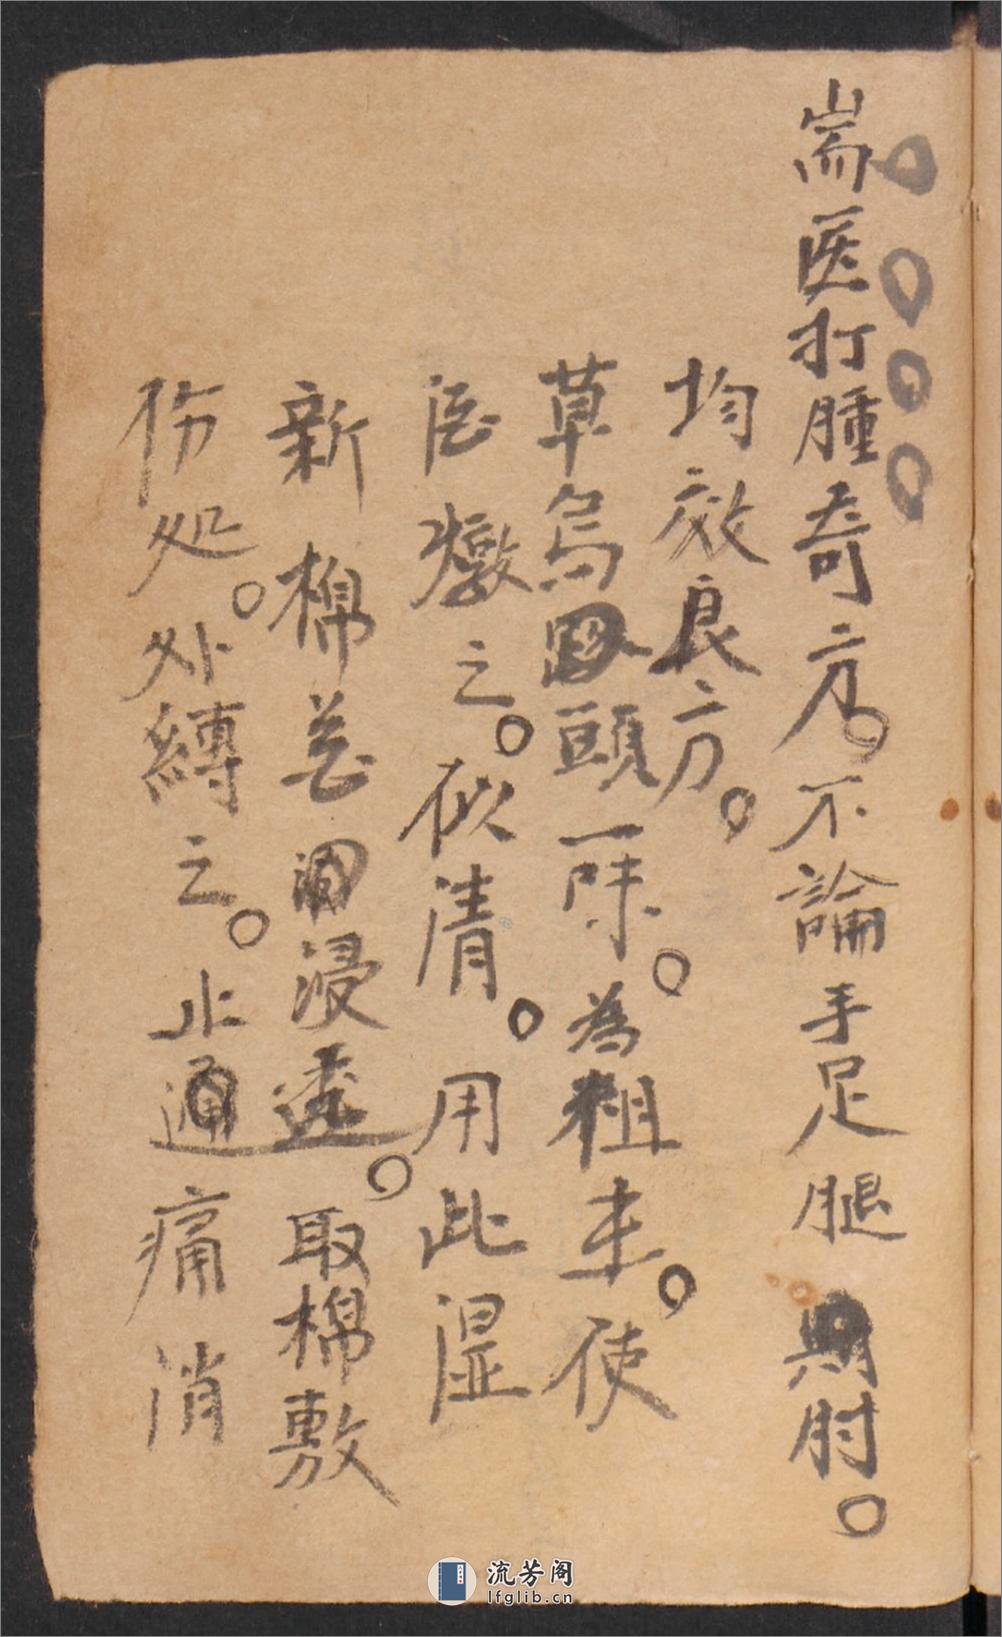 耑医打腫奇方。不論手足腿肘。
均效良方。
草烏頭一味。為粗末。使
燉之。似清。用此湿
新棉花浸透。取棉敷
伤处。外縛之。止痛消
流芳阁
lfglib.cn